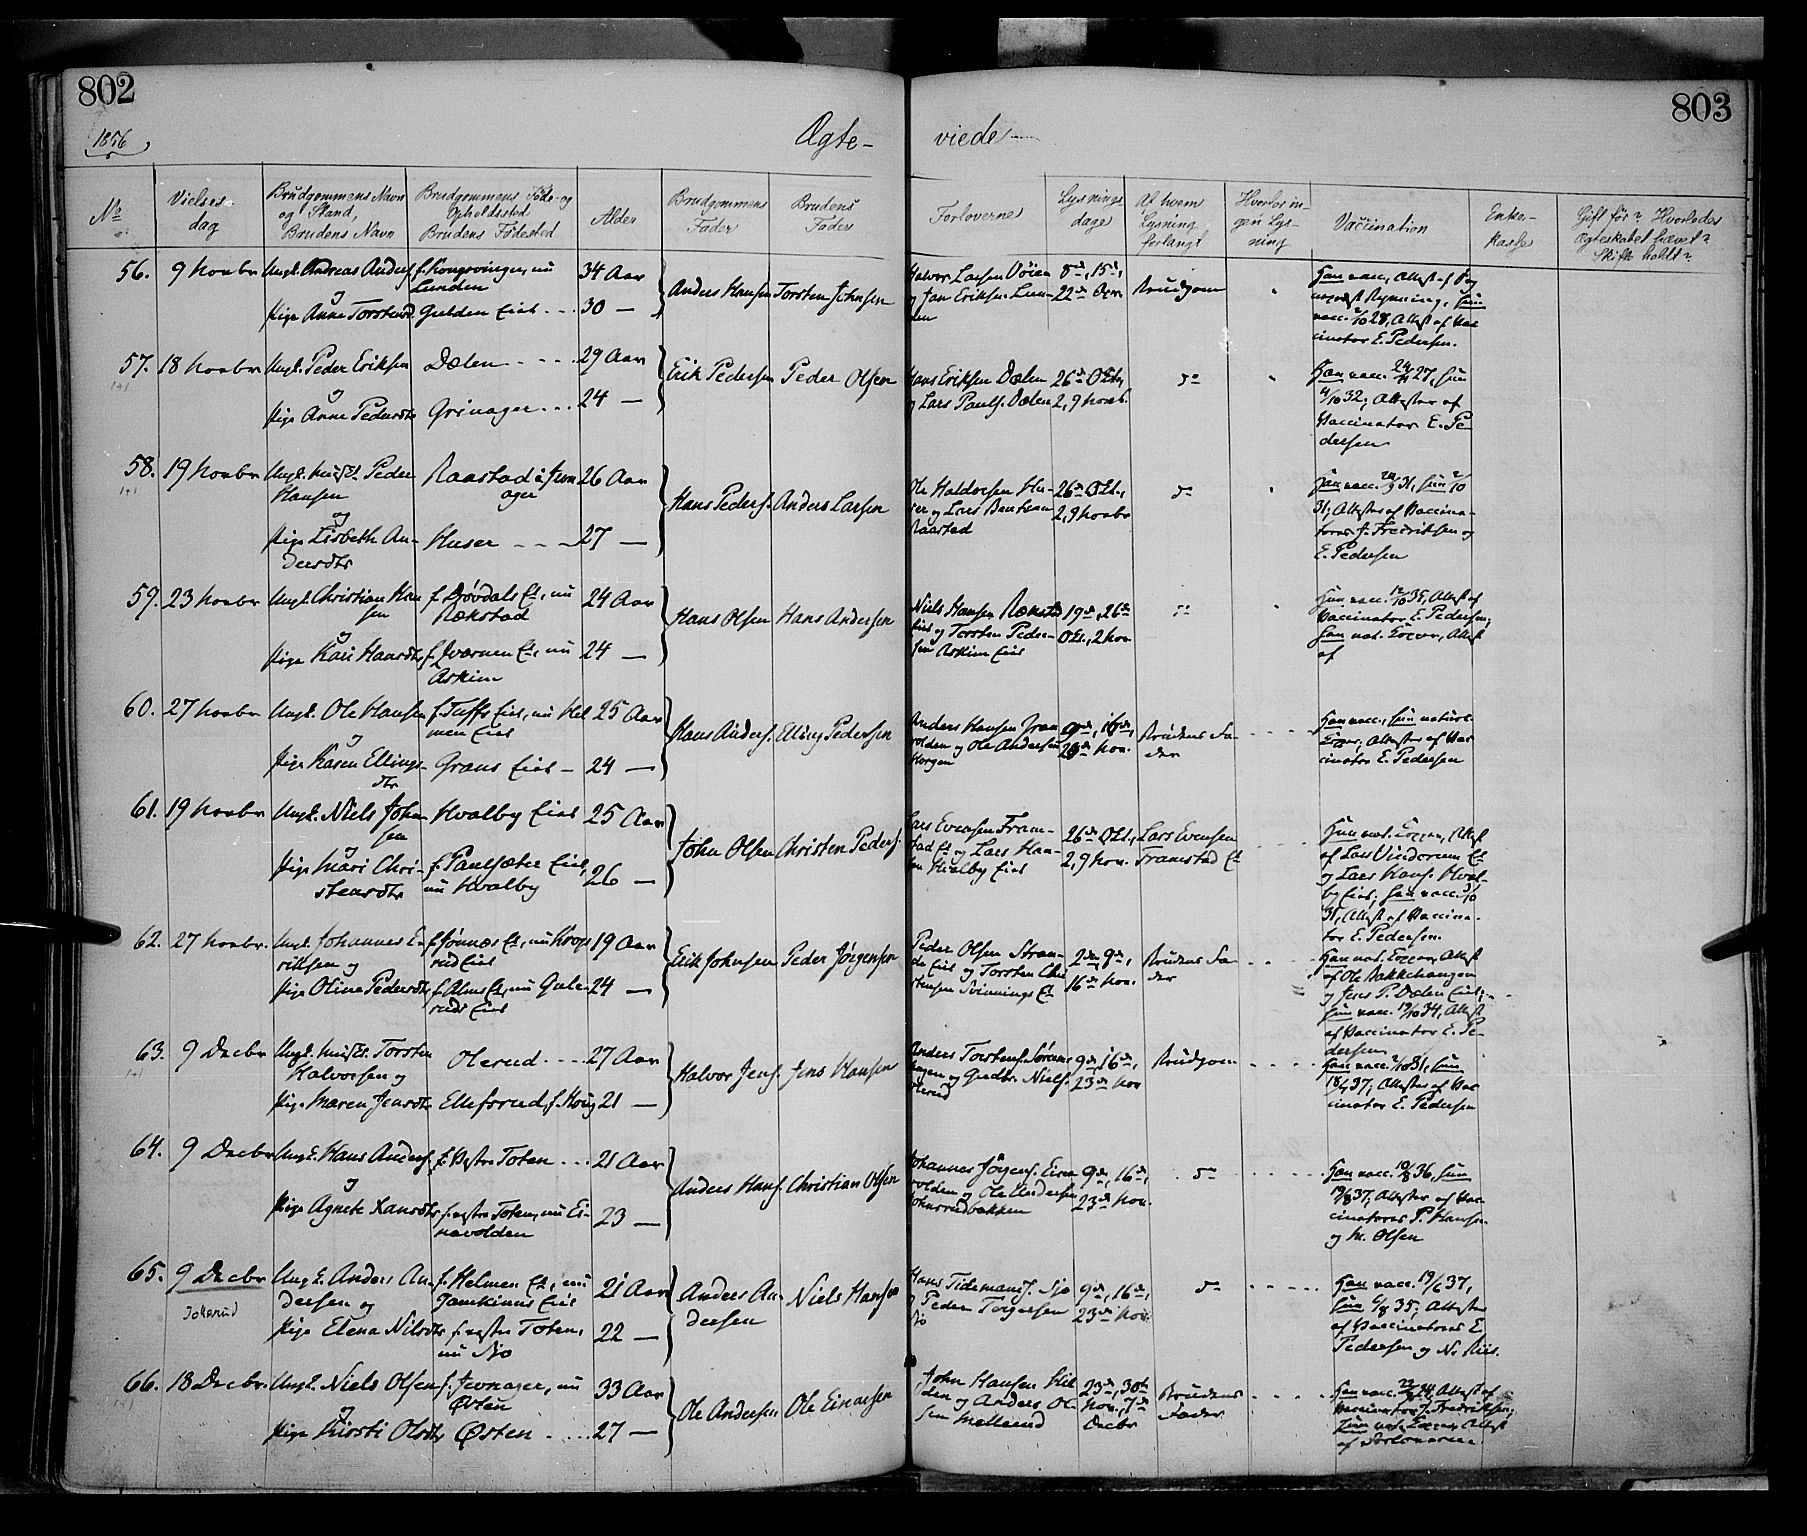 802
803
1856
Ægte-
viede
No
Vielses
dag
Brudgommens Navn
og Stand,
Brudens Navn
Brudgommens Føde- og
Opholdssted
Brudens Fødested
Alder
Brudgommens
Fader
Brudens
Fader
Forloverne
Lysnings
dage
Af hvem
Lysning
forlangt
Hvorfor in-
gen Lys-
ning
Vaccination
Enke-
kasse
Gift før? Hvorledes
Ægteskabet hævet?
Skifte holdt?
56.
9 Novbr
Ungk. Andreas Anders
og
Pige Anne Torstensd.
f. Kongsvinger, nu
Lunden
Gulden Eiet
34 Aar
30 —
Anders Hansen
Torsten Johnsen
Halvor Larsen
og Jan Eriksen Lun-
den
8de, 15de,
22de
Brudgom
Han vacc., Attest af
Hun
vacc. 28, Attest af Vac
cinator E. Pedersen.
57.
18 Novbr
Ungk. Peder Eriksen
og
Pige Anne Pedersdr
Dælen
Grinager
29 Aar
24 —
Erik Pedersen
Peder Olsen
Hans Eriksen Dælen
og Lars Pauls. Dælen
26de Octbr,
2, 9 Novb.
do
Han vacc. 27, Hun
32; Attester af
Vaccinator E. Pe
dersen
58.
19 Novbr
Peder
Hansen
og
Pige Lisbeth An-
dersdtr
Raastad i Jevn
ager
Huser
26 Aar
27 —
Hans Peders.
Anders Larsen
Ole Haldorsen Hu-
ser og Lars Bentsen
Raastad
26de Oct.,
2, 9 Novbr
do
Han vacc. 31, Hun
31; Attester af Vaccina-
torer J. Fredriksen og
E. Pedersen
59.
23 Novbr
Ungk. Christian Han
sen
og
Pige Kari Hansdtr
Rækstad
Askim
24 Aar
24 —
Hans Olsen
Hans Andersen
Niels Hansen Rækstd
Eiet og Torsten Peder-
sen Askim Eiet
19de, 26de
Oct., 2 Nov.
do
35, Attest af
Vaccinator E. Pedersen;
af
60.
27 Novbr
Ungk. Ole Hansen
og
Pige Karen Ellings-
dtr
f. Tuffs Eiet, nu Hel
men Eiet
Grans Eiet
25 Aar
24 —
Hans Anders.
Elling Pedersen
Anders Hansen Gran
volden og Ole Andersen
Horgen
9de, 16de,
23de Nov.
Brudens Fa-
der
Han vacc., Hun naturl.
Attester af Vac
cinator E. Pedersen
61.
19 Novbr
Ungk. Niels John-
sen
og
Pige Mari Chri-
stensdtr
Hvalby Eiet
f. Paulsæter Eiet,
nu Hvalby
25 Aar
26 —
John Olsen
Christen Peders.
Lars Evensen Fram-
stad Et og Lars Han-
sen Hvalby Eiet
26de Oct.,
2, 9 Nov.
Lars Evensen
Framstad Et
Attest
af Lars
og Lars Hans. Hval-
by Eiet; Han vacc.
35, Attest af Vaccina-
tor E. Pedersen.
62.
27 Novbr.
Ungk. Johannes E-
riksen og
Pige Oline Pedersdtr
f. Jønnæs Et, nu Krops
rud Eiet
f. Alms Et, nu Gule
ruds Eiet
19 Aar
24 —
Erik Johnsen
Peder Jørgensen
Peder Olsen Stran-
de Eiet og Torsten Chri
stensen Svinnings Et
2de, 9de,
16de Nov.
Brudens Fa-
der
Attest
af Ole Bakkehaugen
og Jens P. Dælen Eiet;
Hun vacc. 34, Attest
af Vaccinator E. Pe-
dersen
63.
9 Decbr
Torsten
Halvorsen og
Pige Maren Jensdtr
Olerud
Ellefsrud, f. Houg
27 Aar
21 —
Halvor Jens.
Jens Hansen
Anders Torstens.
og Gudbr. Niels.
Olerud
9de, 16de,
23de Nov
Brudgom
Han vacc. 31, Hun
37; Attester af Vac
cinator E. Pedersen
64.
9 Decbr
Ungk. Hans Anders.
og
Pige Agnete Hansdtr
f. Vestre Toten
f. vestre Toten, nu Ei-
navolden
21 Aar
23 —
Anders Hans.
Christian Olsen
Johannes Jørgens. Eina
volden og Ole Andersen
Johnsrudbakken
9de, 16de,
23de Nov.
do
Han vacc. 36, Hun
37; Attester af Vac
cinatorer P. Hansen
og M. Olsen
65.
9 Decbr
Ungk. Anders An-
dersen og
Pige Elena Nilsdtr
f. Helmen Et, nu
f. vestre Toten,
nu Sjo
21 Aar
22 —
Anders An-
dersen
Niels Hansen
Hans Tidemans. Sjo
og Peder Torgersen
Sjo
9de, 16de,
23de Nov.
do
Han vacc. 37,
Hun 35. Attester
af Vaccinatorer E.
Pedersen og N. Riis.
66.
18 Decbr.
Ungk. Niels Olsen
og
Pige Kirsti Olsdtr
f. Jevnager, nu
Østen
Østen
33 Aar
27 —
Ole Andersen
Ole Einarsen
John Hansen
og Anders Ol-
sen
23de, 30te
Nov., 7de
Decbr
Brudens
Fader
Han vacc. 24, Attest af
Vaccinator J. Fredriksen;
Attest
af Forloverne